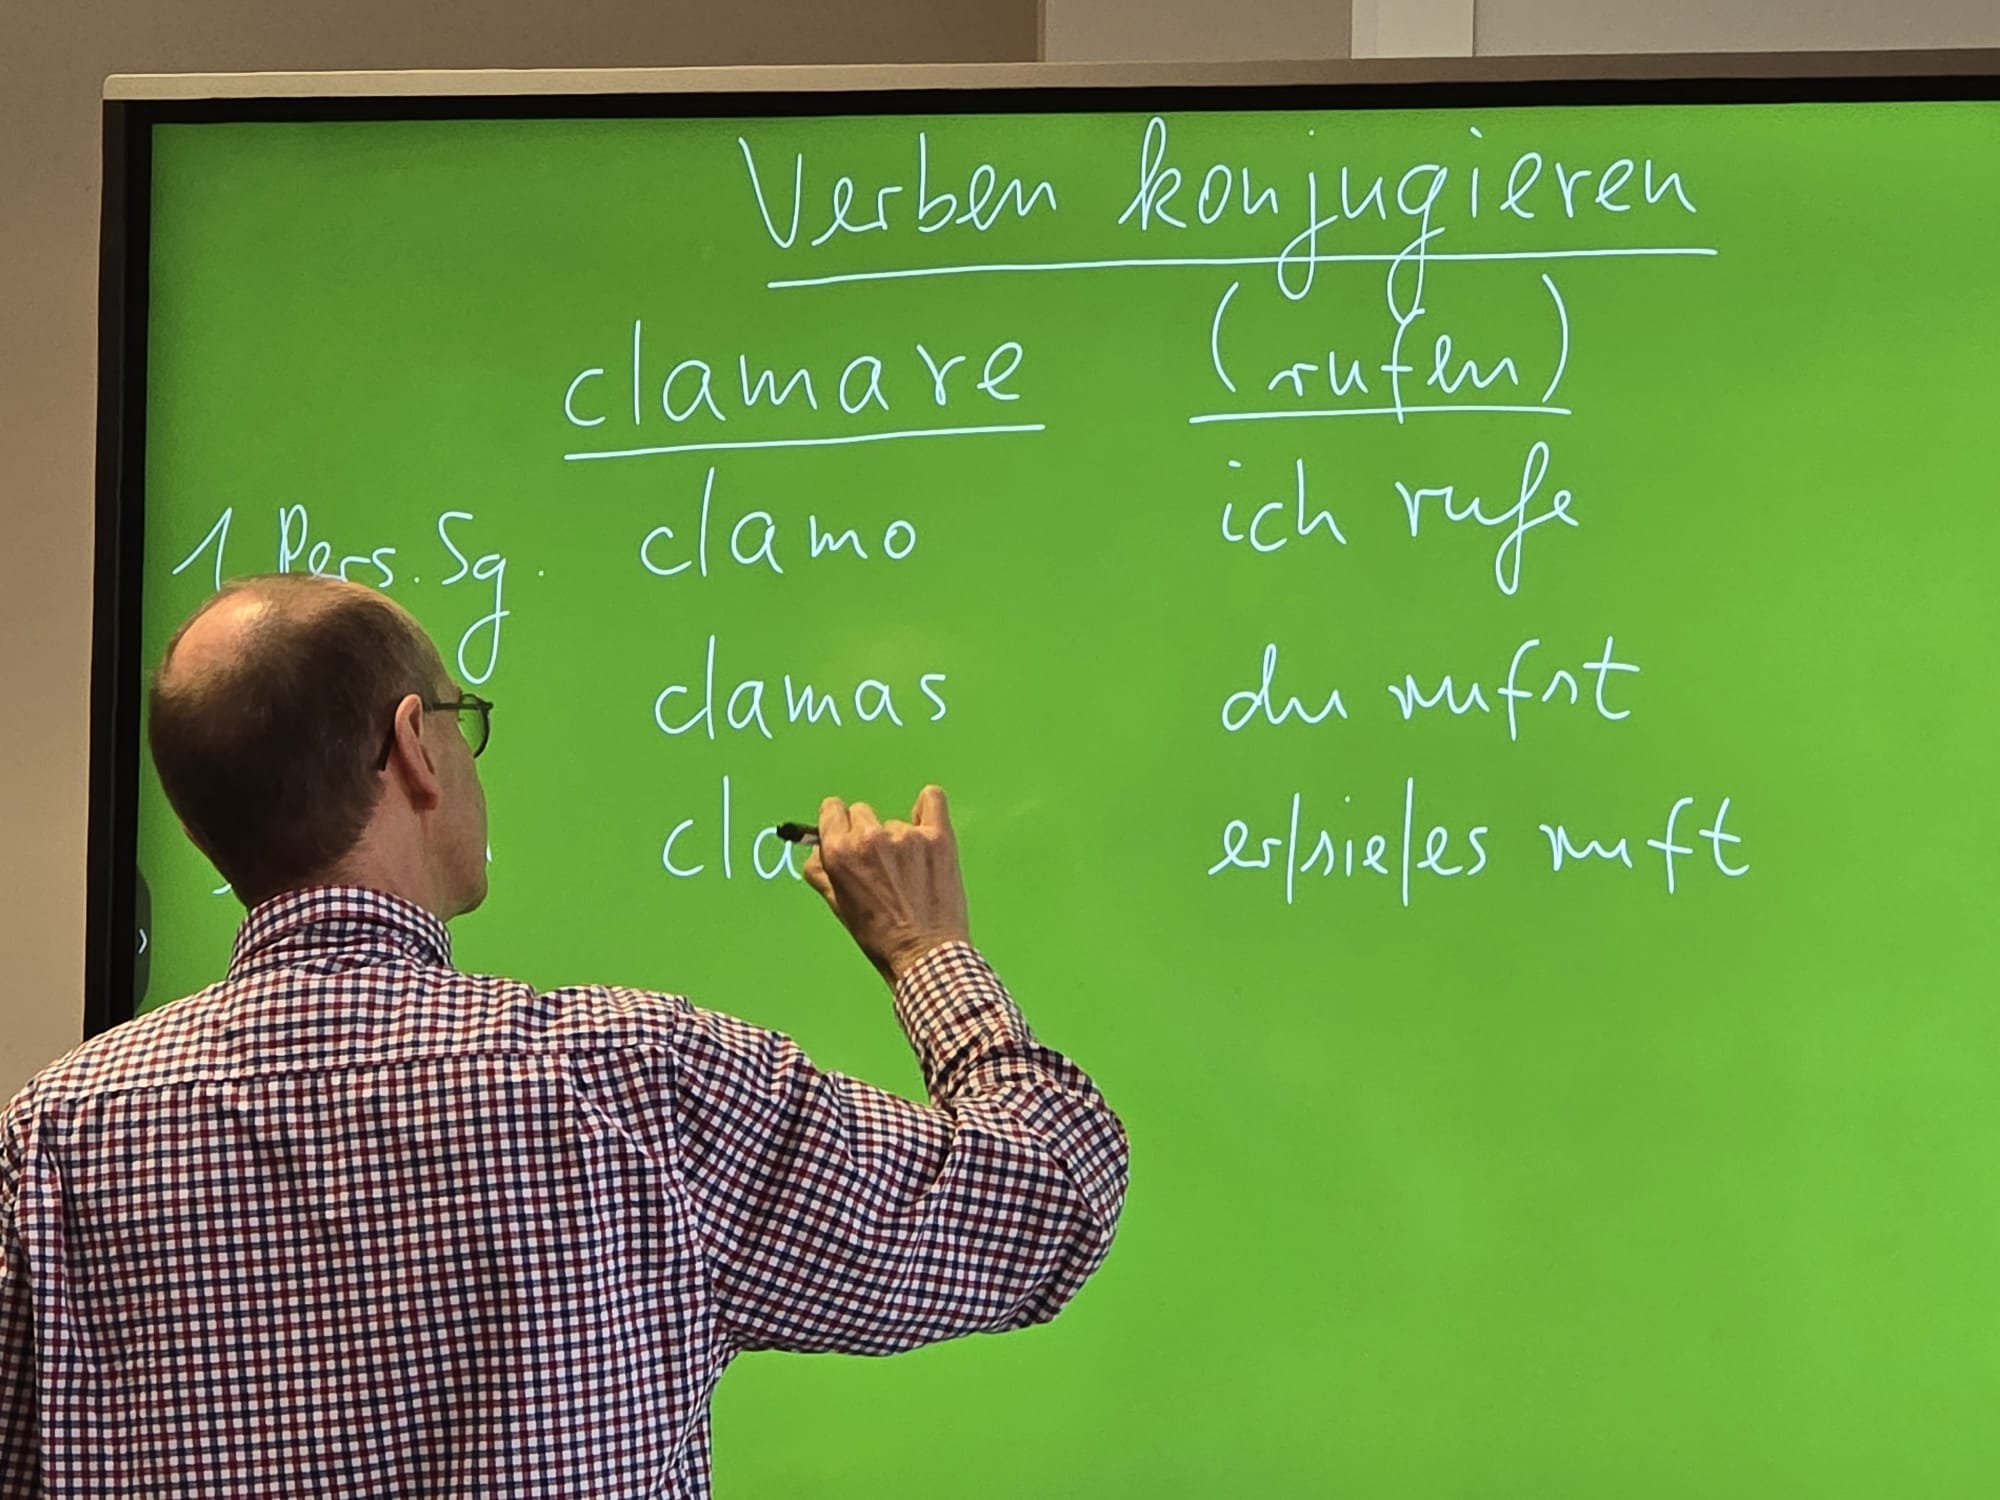 Verben konjugieren
clamare (rufen)
1. Pers. Sg. clamo ich rufe
clamas du rufst
cla er/sie/es ruft